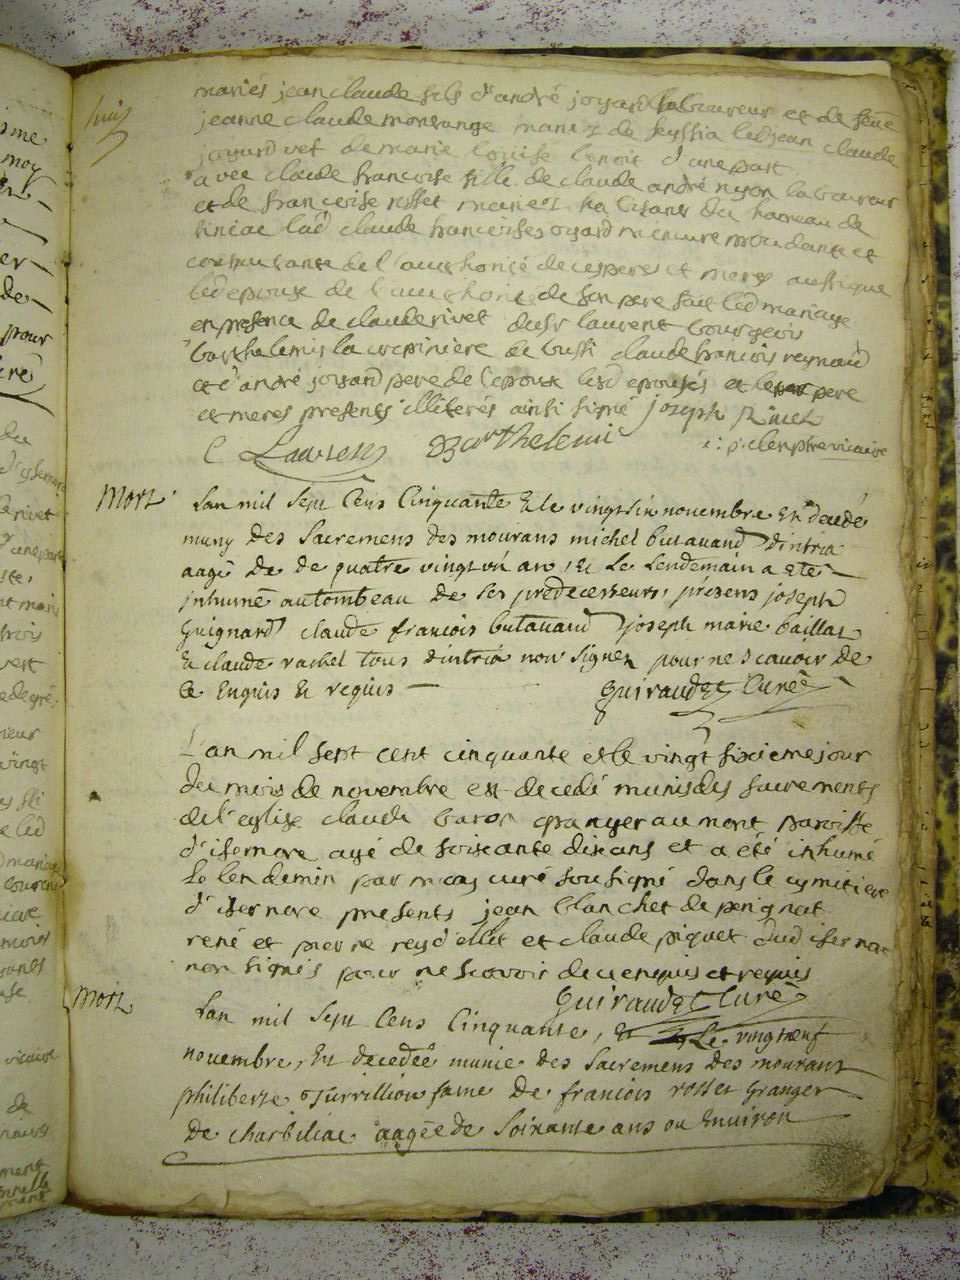 mariés jean claude fils d'andré joyard laboureur et de feüe
jeanne claude montange mariez de seyssia led jean claude
joyard vef de marie louise benoit d'une part
avec claude francoise fille de claude andré nyon laboureur
et de francoise rosset mariez habitans du hameau de
lad claude francoise mineure procedante et
de l'authorité de ses pere et mere aussi que
led epoux de l'authorité de son pere fait led mariage
en presence de claude rivet du sr laurent bourgeois
barthelemi la crepiniere de bussi claude francois reynaud
et d'andré joyard pere de l'epoux lesd epousés et les pere
et meres presents illiterés ainsi signé joseph Rivet
C Laurent Barthelemi vicaire
Mort
Lan mil Sept Cens Cinquante Et le vingt six novembre Est decedé
muny des Sacremens des mourans michel butavand Dintria
aagé De de quatre vingt un an, Et Le Lendemain a Eté
Inhumé au tombeau de Ses predecesseurs, présens joseph
Guignard claude francois butavand joseph marie baillat
Et claude rachel tous dintria non Signez pour ne Scavoir de
Ce Enquis Et requis Guiraudet Curé
L'an mil sept cent cinquante et le vingt sixieme jour
du mois de novembre est decedé munis des sacrements
de l'eglise claude baron granger au mont paroisse
d'isernore agé de soixante dix ans et a été inhumé
le lendemin par moy curé sousigné dans le cymitiere
d'isernore presents jean blanchet de perignat
rené et pierre rey d'ellit et claude piquet dud isernore
non signés pour ne scavoir de ce enquis et requis
Guiraudet Curé
Mort
Lan mil Sept Cens Cinquante, Et Le vingt neuf
novembre, Est decedée munie des Sacremens des mourans
philiberte Jurrillion fame de francois rosset Granger
De charbiliac aagée de Soixante ans ou Environ